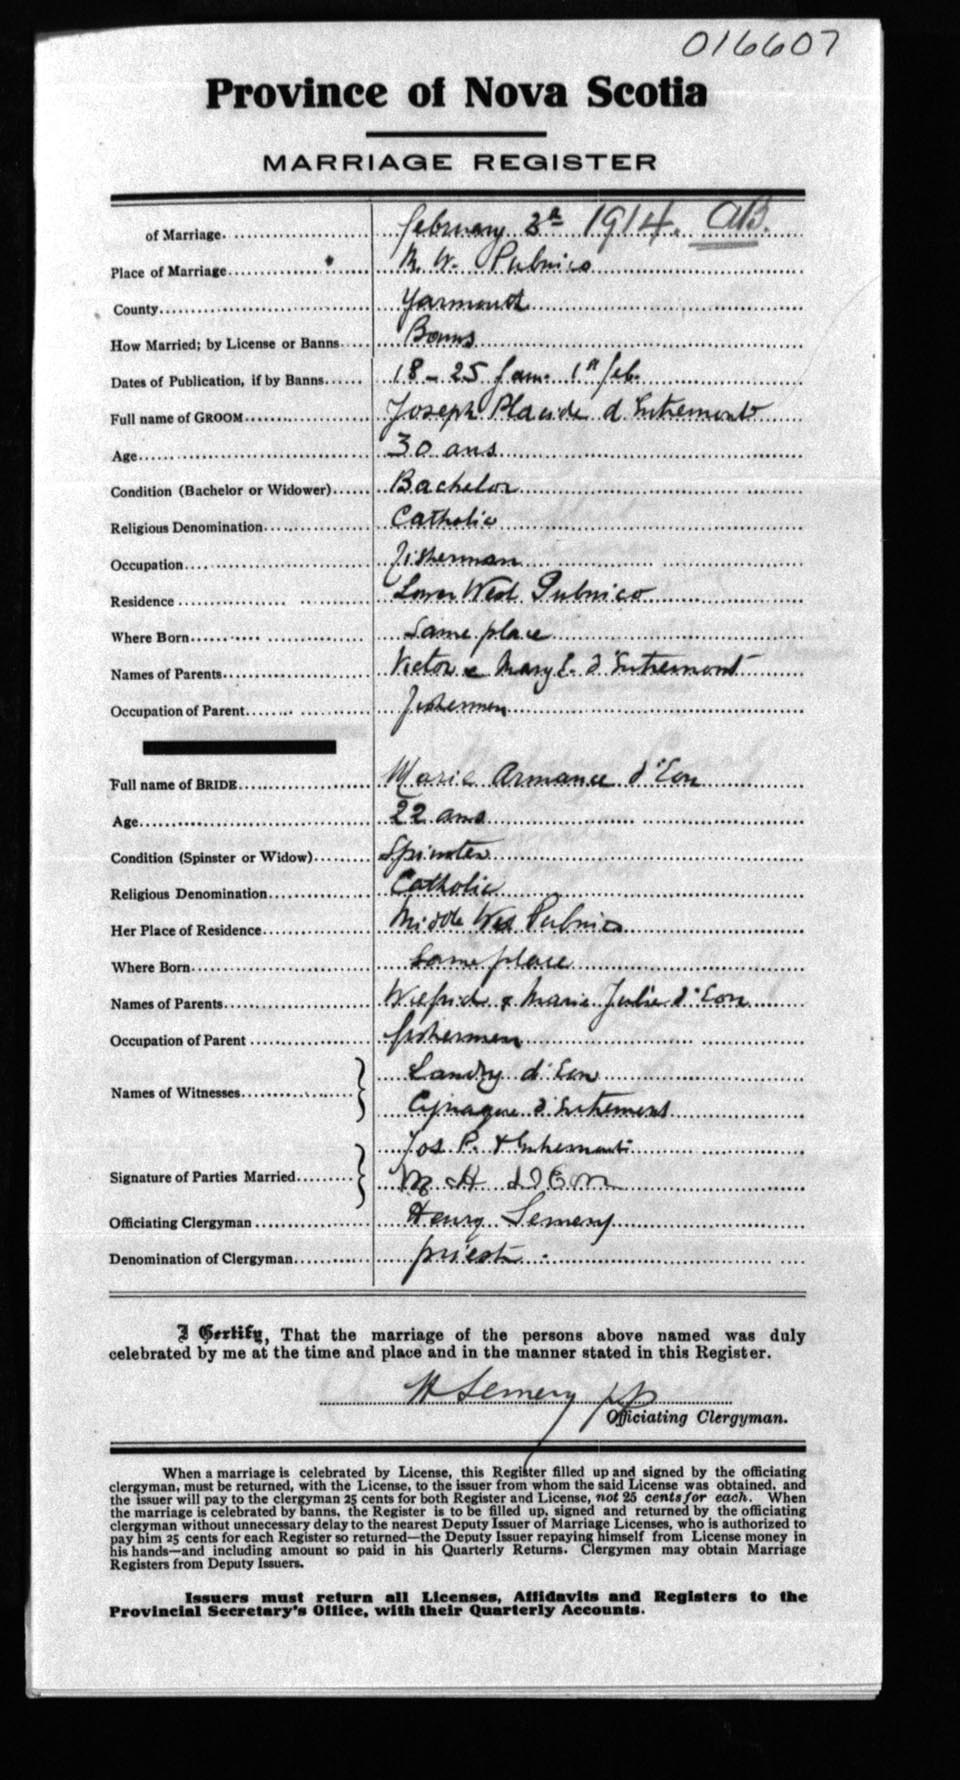 016607
Province of Nova Scotia
MARRIAGE REGISTER
of Marriage february 3d 1914. AB.
Place of Marriage M. W. Pubnico
County Yarmouth
How Married; by License or Banns Banns
Dates of Publication, if by Banns 18-25 Jan. 1st feb.
Full name of GROOM Joseph Placide d'Entremont
Age 30 ans
Condition (Bachelor or Widower) Bachelor
Religious Denomination Catholic
Occupation fisherman
Residence Lower West Pubnico
Where Born Same place
Names of Parents Victor & Mary E. d'Entremont
Occupation of Parent fishermen
Full name of BRIDE Marie Armance d'Eon
Age 22 ans
Condition (Spinster or Widow) Spinster
Religious Denomination Catholic
Her Place of Residence Middle West Pubnico
Where Born Same place
Names of Parents Wilfrid & Marie Julie d'Eon
Occupation of Parent fishermen
Names of Witnesses Landry d'Eon
d'Entremont
Signature of Parties Married Jos P. d'Entremont
M A D Eon
Officiating Clergyman Henry
Denomination of Clergyman priest
I Certify, That the marriage of the persons above named was duly
celebrated by me at the time and place and in the manner stated in this Register.
H
Officiating Clergyman.
When a marriage is celebrated by License, this Register filled up and signed by the officiating
clergyman, must be returned, with the License, to the issuer from whom the said License was obtained, and
the issuer will pay to the clergyman 25 cents for both Register and License, not 25 cents for each. When
the marriage is celebrated by banns, the Register is to be filled up, signed and returned by the officiating
clergyman without unnecessary delay to the nearest Deputy Issuer of Marriage Licenses, who is authorized to
pay him 25 cents for each Register so returned—the Deputy Issuer repaying himself from License money in
his hands—and including amount so paid in his Quarterly Returns. Clergymen may obtain Marriage
Registers from Deputy Issuers.
Issuers must return all Licenses, Affidavits and Registers to the
Provincial Secretary's Office, with their Quarterly Accounts.